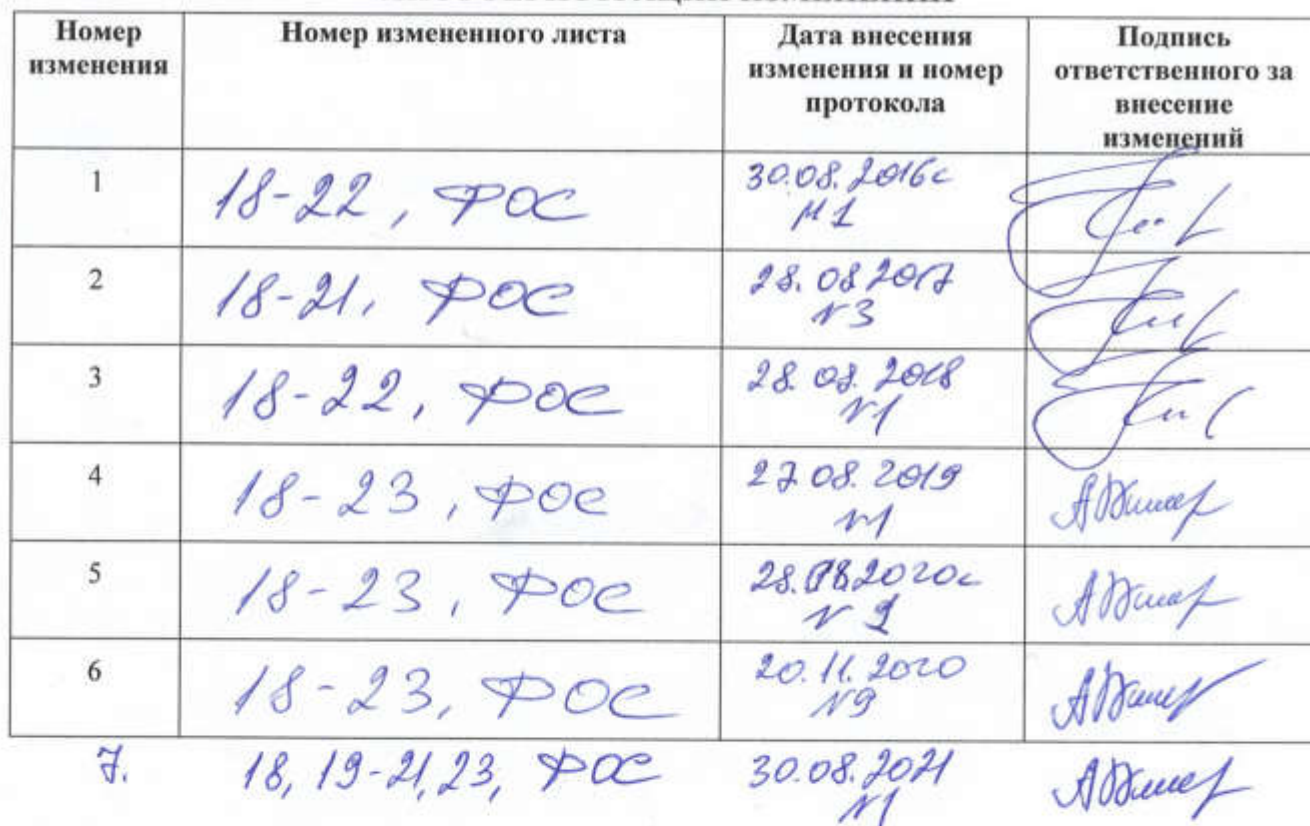 Номер изменения | Номер измененного листа | Дата внесения изменения и номер протокола | Подпись ответственного за внесение изменений
1 | 18-22, ФОС | 30.08.2016г №1
2 | 18-21, ФОС | 28.08.2017 №3
3 | 18-22, ФОС | 28.08.2018 №1
4 | 18-23, ФОС | 27.08.2019 №1
5 | 18-23, ФОС | 28.08.2020г №
6 | 18-23, ФОС | 20.11.2020 №9
7. | 18, 19-21, 23, ФОС | 30.08.2021 №1